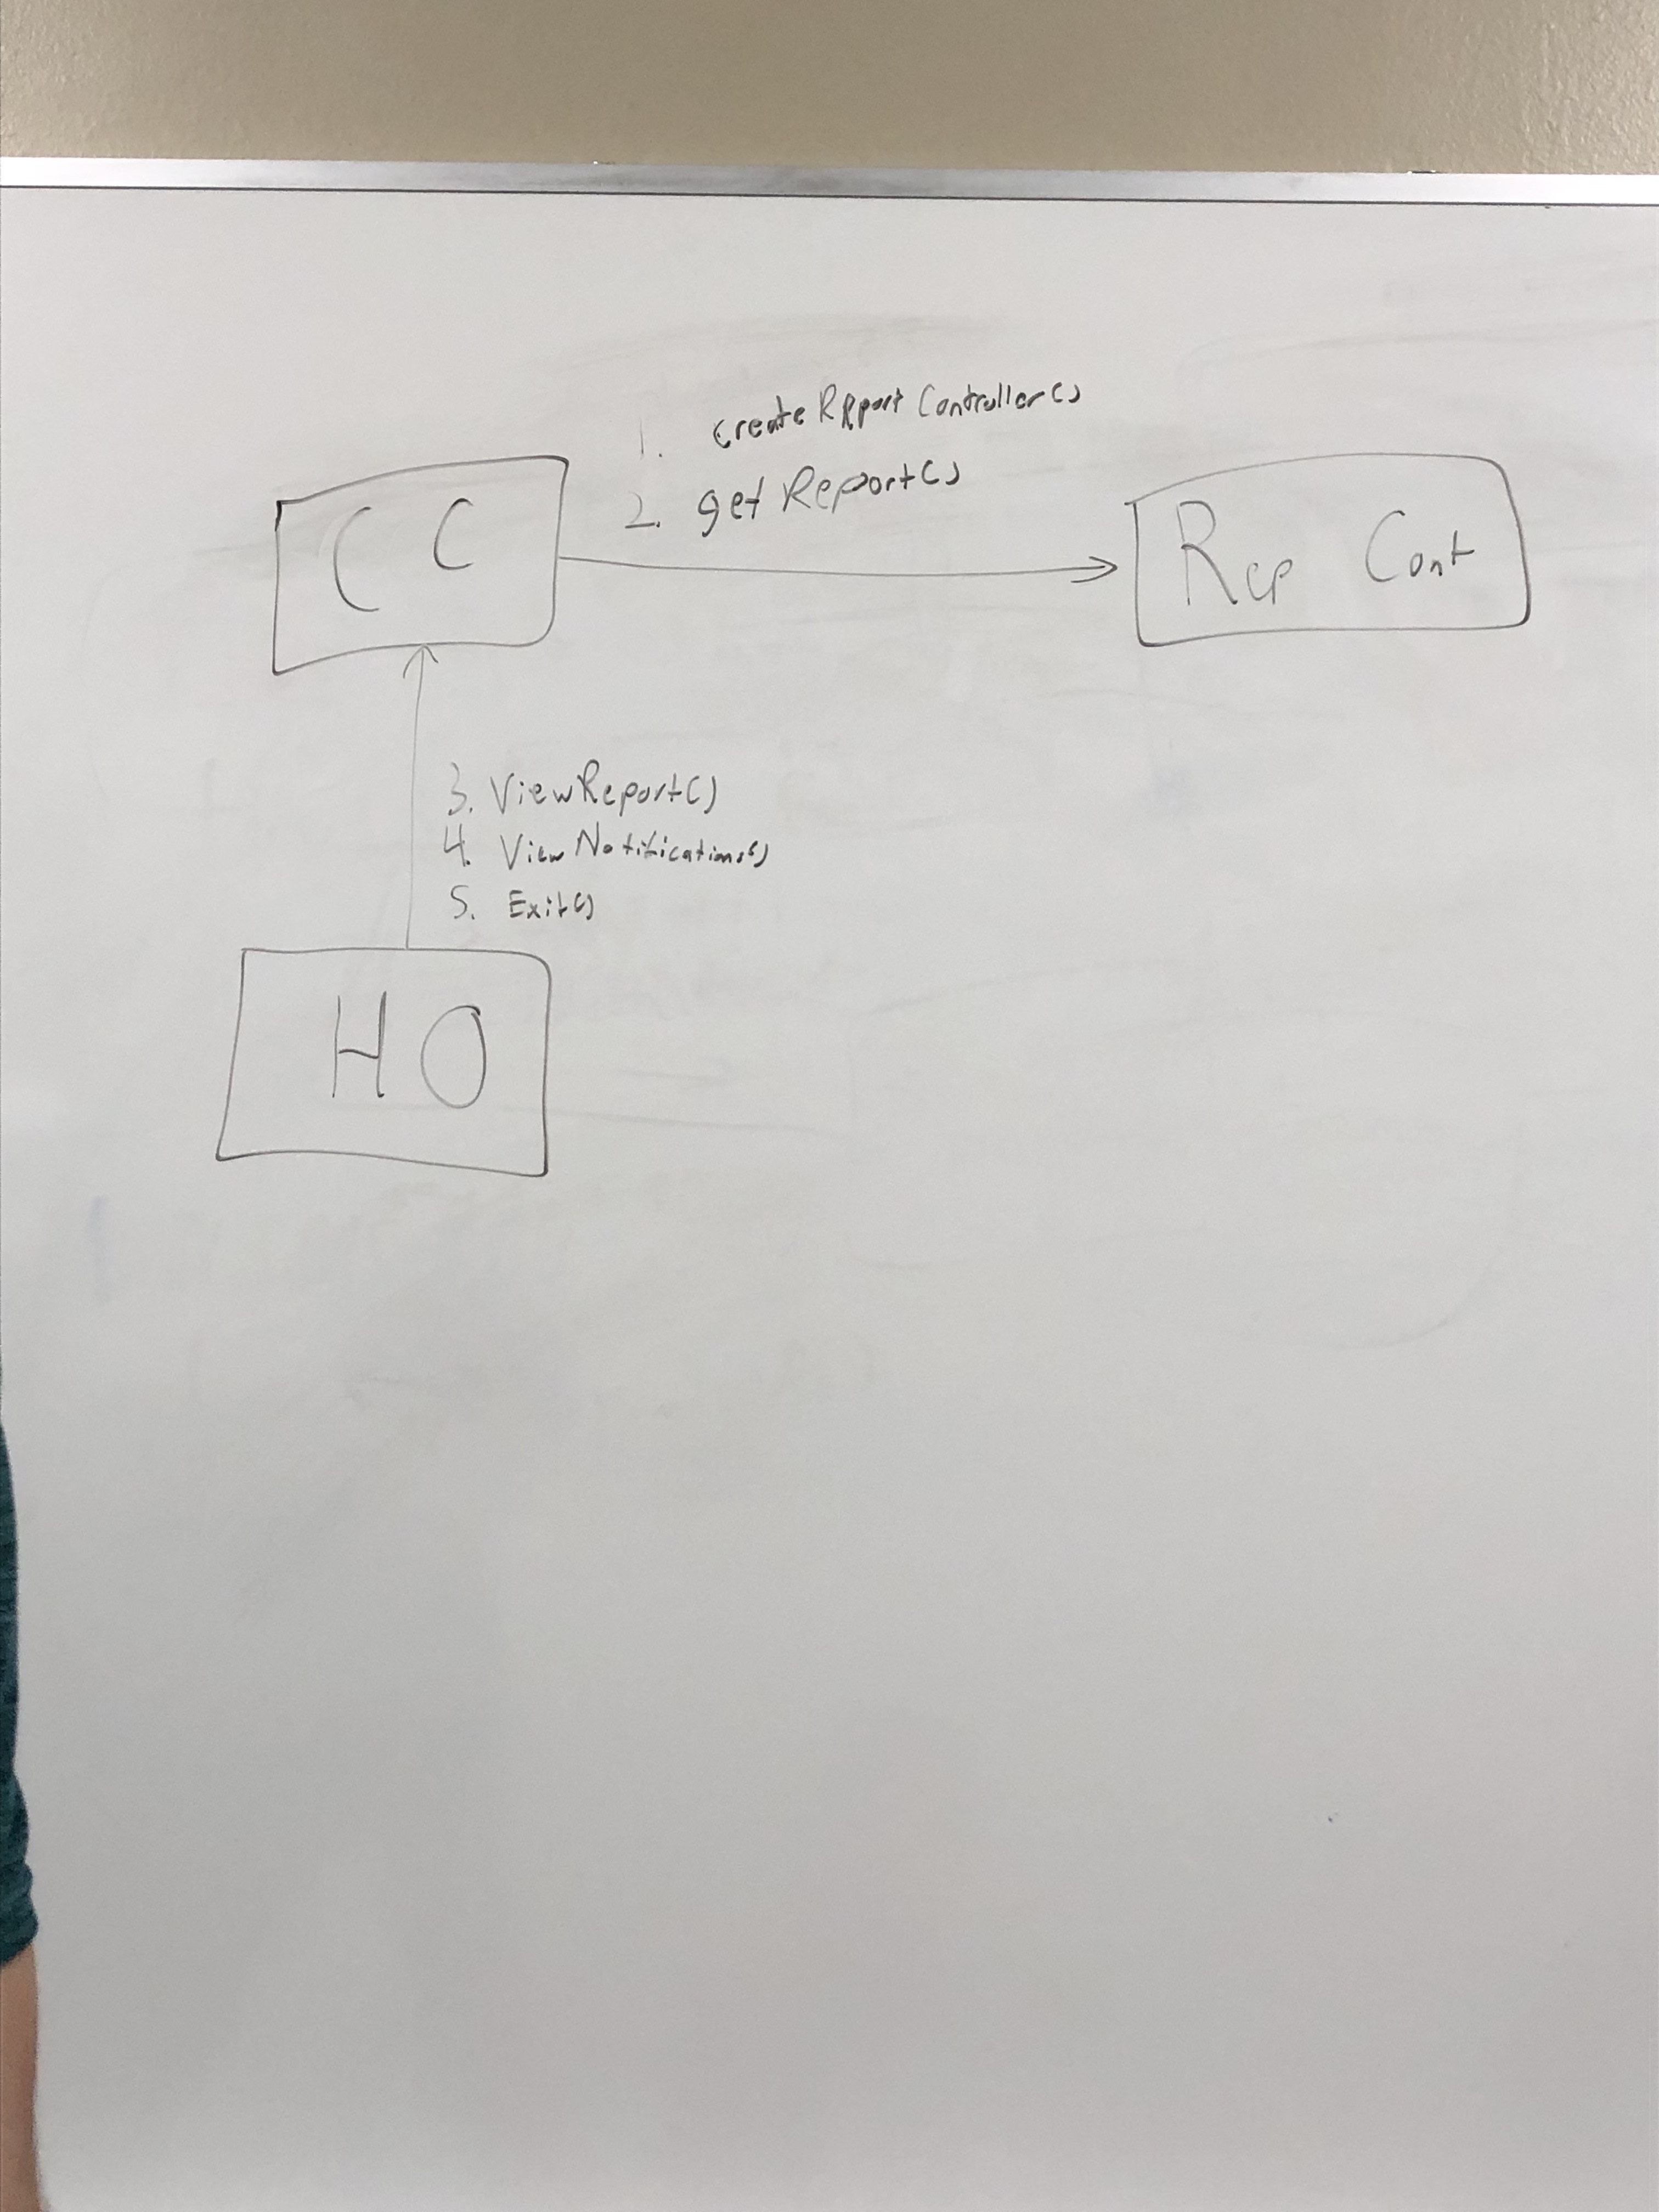 1. createReportController()
2. getReport()
C C
Rep Cont
3. ViewReport()
4. ViewNotifications()
5. Exit()
H O